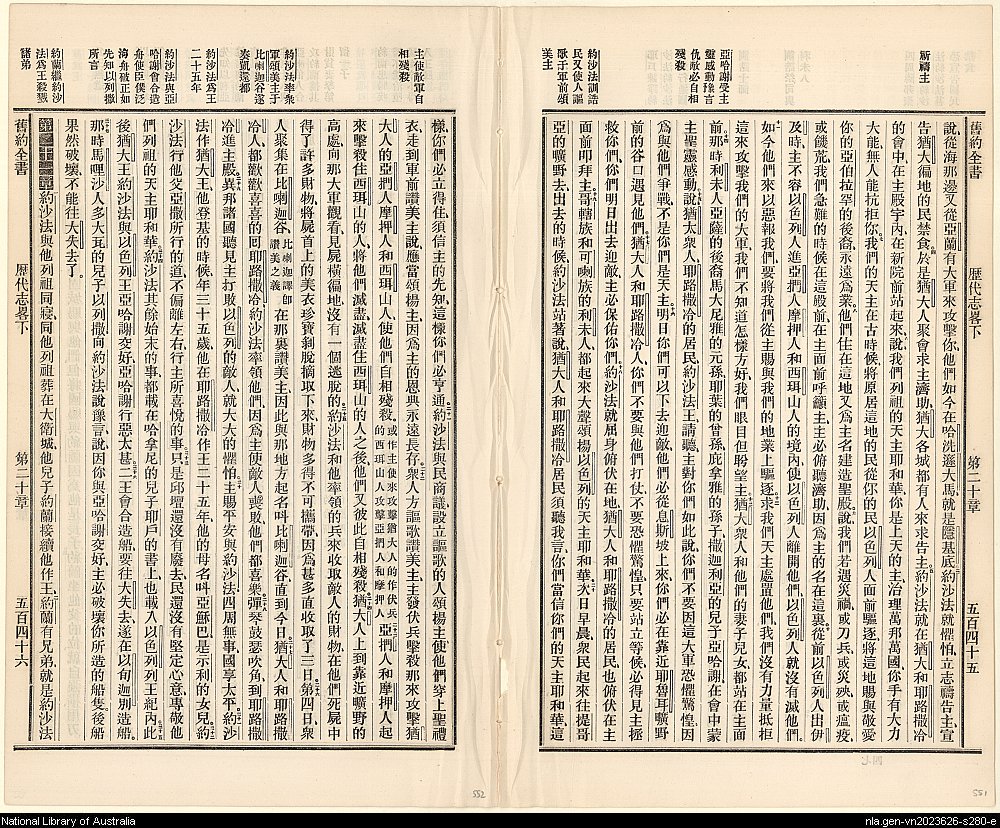 祈禱主
亞哈謝受主
靈感動豫言
仇敵必自相
殘殺
約沙法訓誥
民又使人謳
歌于軍前頌
美主
舊約全書 歷代志畧下 第二十章 五百四十五
說、從海那邊又從亞蘭有大軍來攻擊你、他們如今在哈洗遜大馬、就是隱基底、約沙法就懼怕、立志禱告主、宣
告猶大徧地的民禁食、於是猶大人聚會求主濟助、猶大各城都有人來求告主、約沙法就在猶大和耶路撒冷
的會中、在主殿宇內、在新院前站起來、說、我們列祖的天主耶和華、你是上天的主、治理萬邦萬國、你手有大力
大能、無人能抗拒你、我們的天主在古時候、將原居這地的民從你的民以色列人面前驅逐、將這地賜與敬愛
你的亞伯拉罕的後裔永遠為業、他們住在這地、又為主名建造聖殿、說、我們若遇災禍、或刀兵、或災殃、或瘟疫、
或饑荒、我們急難的時候、在這殿前、在主面前、呼籲主、主必俯聽濟助、因為主的名在這裏、從前以色列人出伊
及時、主不容以色列人進亞捫人摩押人和西珥山人的境內、使以色列人離開他們、以色列人就沒有滅他們、
如今他們來以惡報我們、要將我們從主賜與我們的地業上驅逐、求我們天主處置他們、我們沒有力量抵拒
這來攻擊我們的大軍、我們不知道怎樣方好、我們眼目但盼望主、猶大衆人和他們的妻子兒女、都站在主面
前、那時利未人亞薩的後裔、馬大尼雅的元孫、耶葉的曾孫、庇拿雅的孫子、撒迦利亞的兒子亞哈謝、在會中蒙
主聖靈感動、說、猶大衆人、耶路撒冷的居民、約沙法王、請聽、主對你們如此說、你們不要因這大軍恐懼驚惶、因
為與他們爭戰、不是你們、是天主、明日你們可以下去迎敵、他們必從息斯坡上來、你們必在靠近耶魯耳曠野
前的谷口遇見他們、猶大人和耶路撒冷人、你們不要與他們打仗、不要恐懼驚惶、只要站立等候、必得見主拯
救你們、你們明日出去迎敵、主必保佑你們、約沙法就屈身俯伏在地、猶大人和耶路撒冷的居民、也俯伏在主
面前叩拜主、哥轄族和可喇族的利未人、都起來大聲頌揚以色列的天主耶和華、次日早晨、衆民起來、往提哥
亞的曠野去、出去的時候、約沙法站著說、猶大人和耶路撒冷居民、須聽我言、你們當信你們的天主耶和華、這
主使敵軍自
相殘殺
約沙法率衆
軍頌美主于
比喇迦谷遂
奏凱還都
約沙法爲王
二十五年
約沙法與亞
哈謝會合造
舟使臣僕泛
海舟破正如
先知以列撒
所言
約蘭繼約沙
法爲王殺戮
諸弟
樣你們必立得住、須信主的先知、這樣你們必亨通、約沙法與民商議、設立謳歌的人頌揚主、使他們穿上聖禮
衣、走到軍前讚美主、說、應當頌揚主、因爲主的恩典永遠長存、衆人方謳歌讚美主、主發伏兵擊殺那來攻擊猶
大人的亞捫人摩押人和西珥山人、使他們自相殘殺、或作主使來攻擊猶大人的作伏兵的西珥山人攻擊亞捫人和摩押人亞捫人和摩押人起
來擊殺住西珥山的人、將他們滅盡、滅盡住西珥山的人之後、他們又彼此自相殘殺、猶大人上到靠近曠野的
高處、向那大軍觀看、見屍橫徧地、沒有一個逃脫的、約沙法和他率領的兵來收取敵人的財物、在他們死屍中
得了許多財物、將屍首上的美衣珍寶剝脫摘取下來、財物多得不可攜帶、因爲甚多、直收取了三日、第四日、衆
人聚集在比喇迦谷、比喇迦譯即讚美之義在那裏讚美主、因此與那地方起名呌比喇迦谷、直到今日、猶大人和耶路撒
冷人、都歡歡喜喜的囘耶路撒冷、約沙法率領他們、因爲主使敵人喪敗、他們都喜樂、彈琴鼓瑟吹角、到耶路撒
冷、進主殿、異邦諸國聽見主打敗以色列的敵人、就大大的懼怕、主賜平安與約沙法、四周無事、國享太平、約沙
法作猶大王、他登基的時候、年三十五歲、他在耶路撒冷作王二十五年、他的母名呌亞穌巴、是示利的女兒、約
沙法行他父亞撒所行的道、不偏離左右、行主所喜悅的事、只是邱壇還沒有廢去、民還沒有堅定心意、專敬他
們列祖的天主耶和華、約沙法其餘始末的事、都載在哈拿尼的兒子耶戶的書上、也載入以色列列王紀內、此
後猶大王約沙法、與以色列王亞哈謝交好、亞哈謝行惡太甚、二王會合造船、要往大失去、遂在以旬迦別造船、
那時馬哩沙人多大瓦的兒子以列撒向約沙法說豫言、說、因你與亞哈謝交好、主必破壞你所造的船隻、後船
果然破壞、不能往大失去了、
第二十一章約沙法與他列祖同寢、同他列祖葬在大衛城、他兒子約蘭接續他作王、約蘭有兄弟、就是約沙法
舊約全書 歷代志畧下 第二十章 五百四十六
552
551
National Library of Australia
nla.gen-vn2023626-s280-e